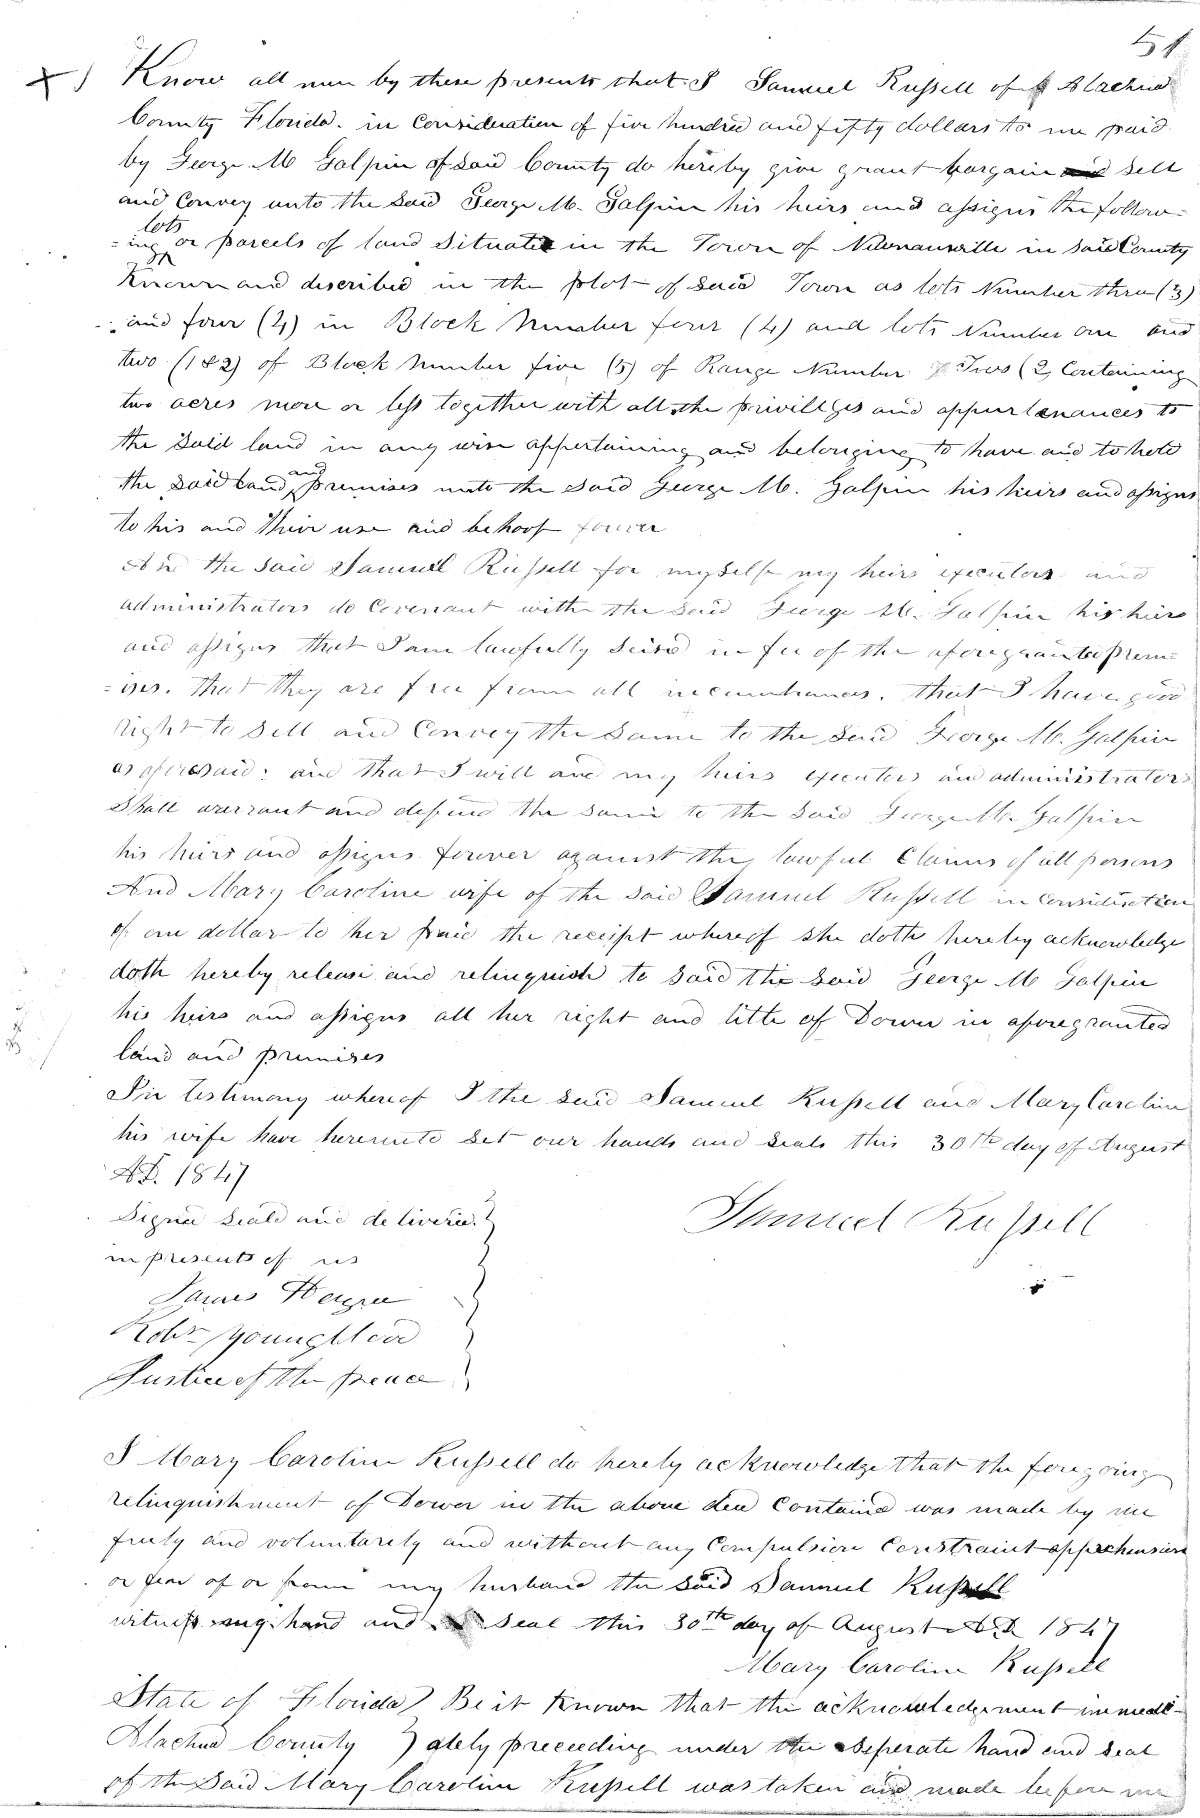 51
X) Know all men by these presents that I Samuel Russell of Alachua
County Florida. in consideration of five hundred and fifty dollars to me paid
by George M Galpin of said County do hereby give grant bargain sell
and Convey unto the said George M. Galpin his heirs and assigns the follow=
lots
=ing or parcels of land situate in the Town of Newnansville in said County
Known and described in the plot of said Town as lots Number three (3)
and four (4) in Block Number four (4) and lots Number one and
two (1&2) of Block Number five (5) of Range Number Two (2) Containing
two acres more or less together with all the priviliges and appurtenances to
the said land in any wise appertaining and belonging to have and to hold
the said land and premises unto the said George M. Galpin his heirs and assigns
to his and their use and behoof forever
And the said Samuel Russell for myself my heirs executors and
administrators do Covenant with the said George M. Galpin his heirs
and assigns that I am lawfully seised in fee of the aforegranted prem=
=ises. that they are free from all incumbrances. that I have good
right to sell and Convey the same to the said George M. Galpin
as aforesaid: and that I will and my heirs executors and administrators
shall warrant and defend the same to the said George M. Galpin
his heirs and assigns forever against the lawful Claims of all persons
And Mary Caroline wife of the said Samuel Russell in consideration
of one dollar to her paid the receipt whereof she doth hereby acknowledge
doth hereby release and relinquish to said the said George M Galpin
his heirs and assigns all her right and title of Dower in aforegranted
land and premises
In testimony whereof I the said Samuel Russell and Mary Caroline
his wife have hereunto set our hands and seals this 30th day of August
AD. 1847
Signed seald and delivered
in presents of us
Samuel Russell
James
Robt Youngblood
Justice of the peace
I Mary Caroline Russell do hereby acknowledge that the foregoing
relinquishment of Dower in the above deed Contained was made by me
freely and voluntarely and without any Compulsion Constraint apprehension
or fear of or from my husband the said Samuel Russell
witness my hand and seal this 30th day of August AD 1847
Mary Caroline Russell
State of Florida } Be it Known that the acknowledgement immedi-
Alachua County } ately preceeding under the seperate hand and seal
of the said Mary Caroline Russell was taken and made before me